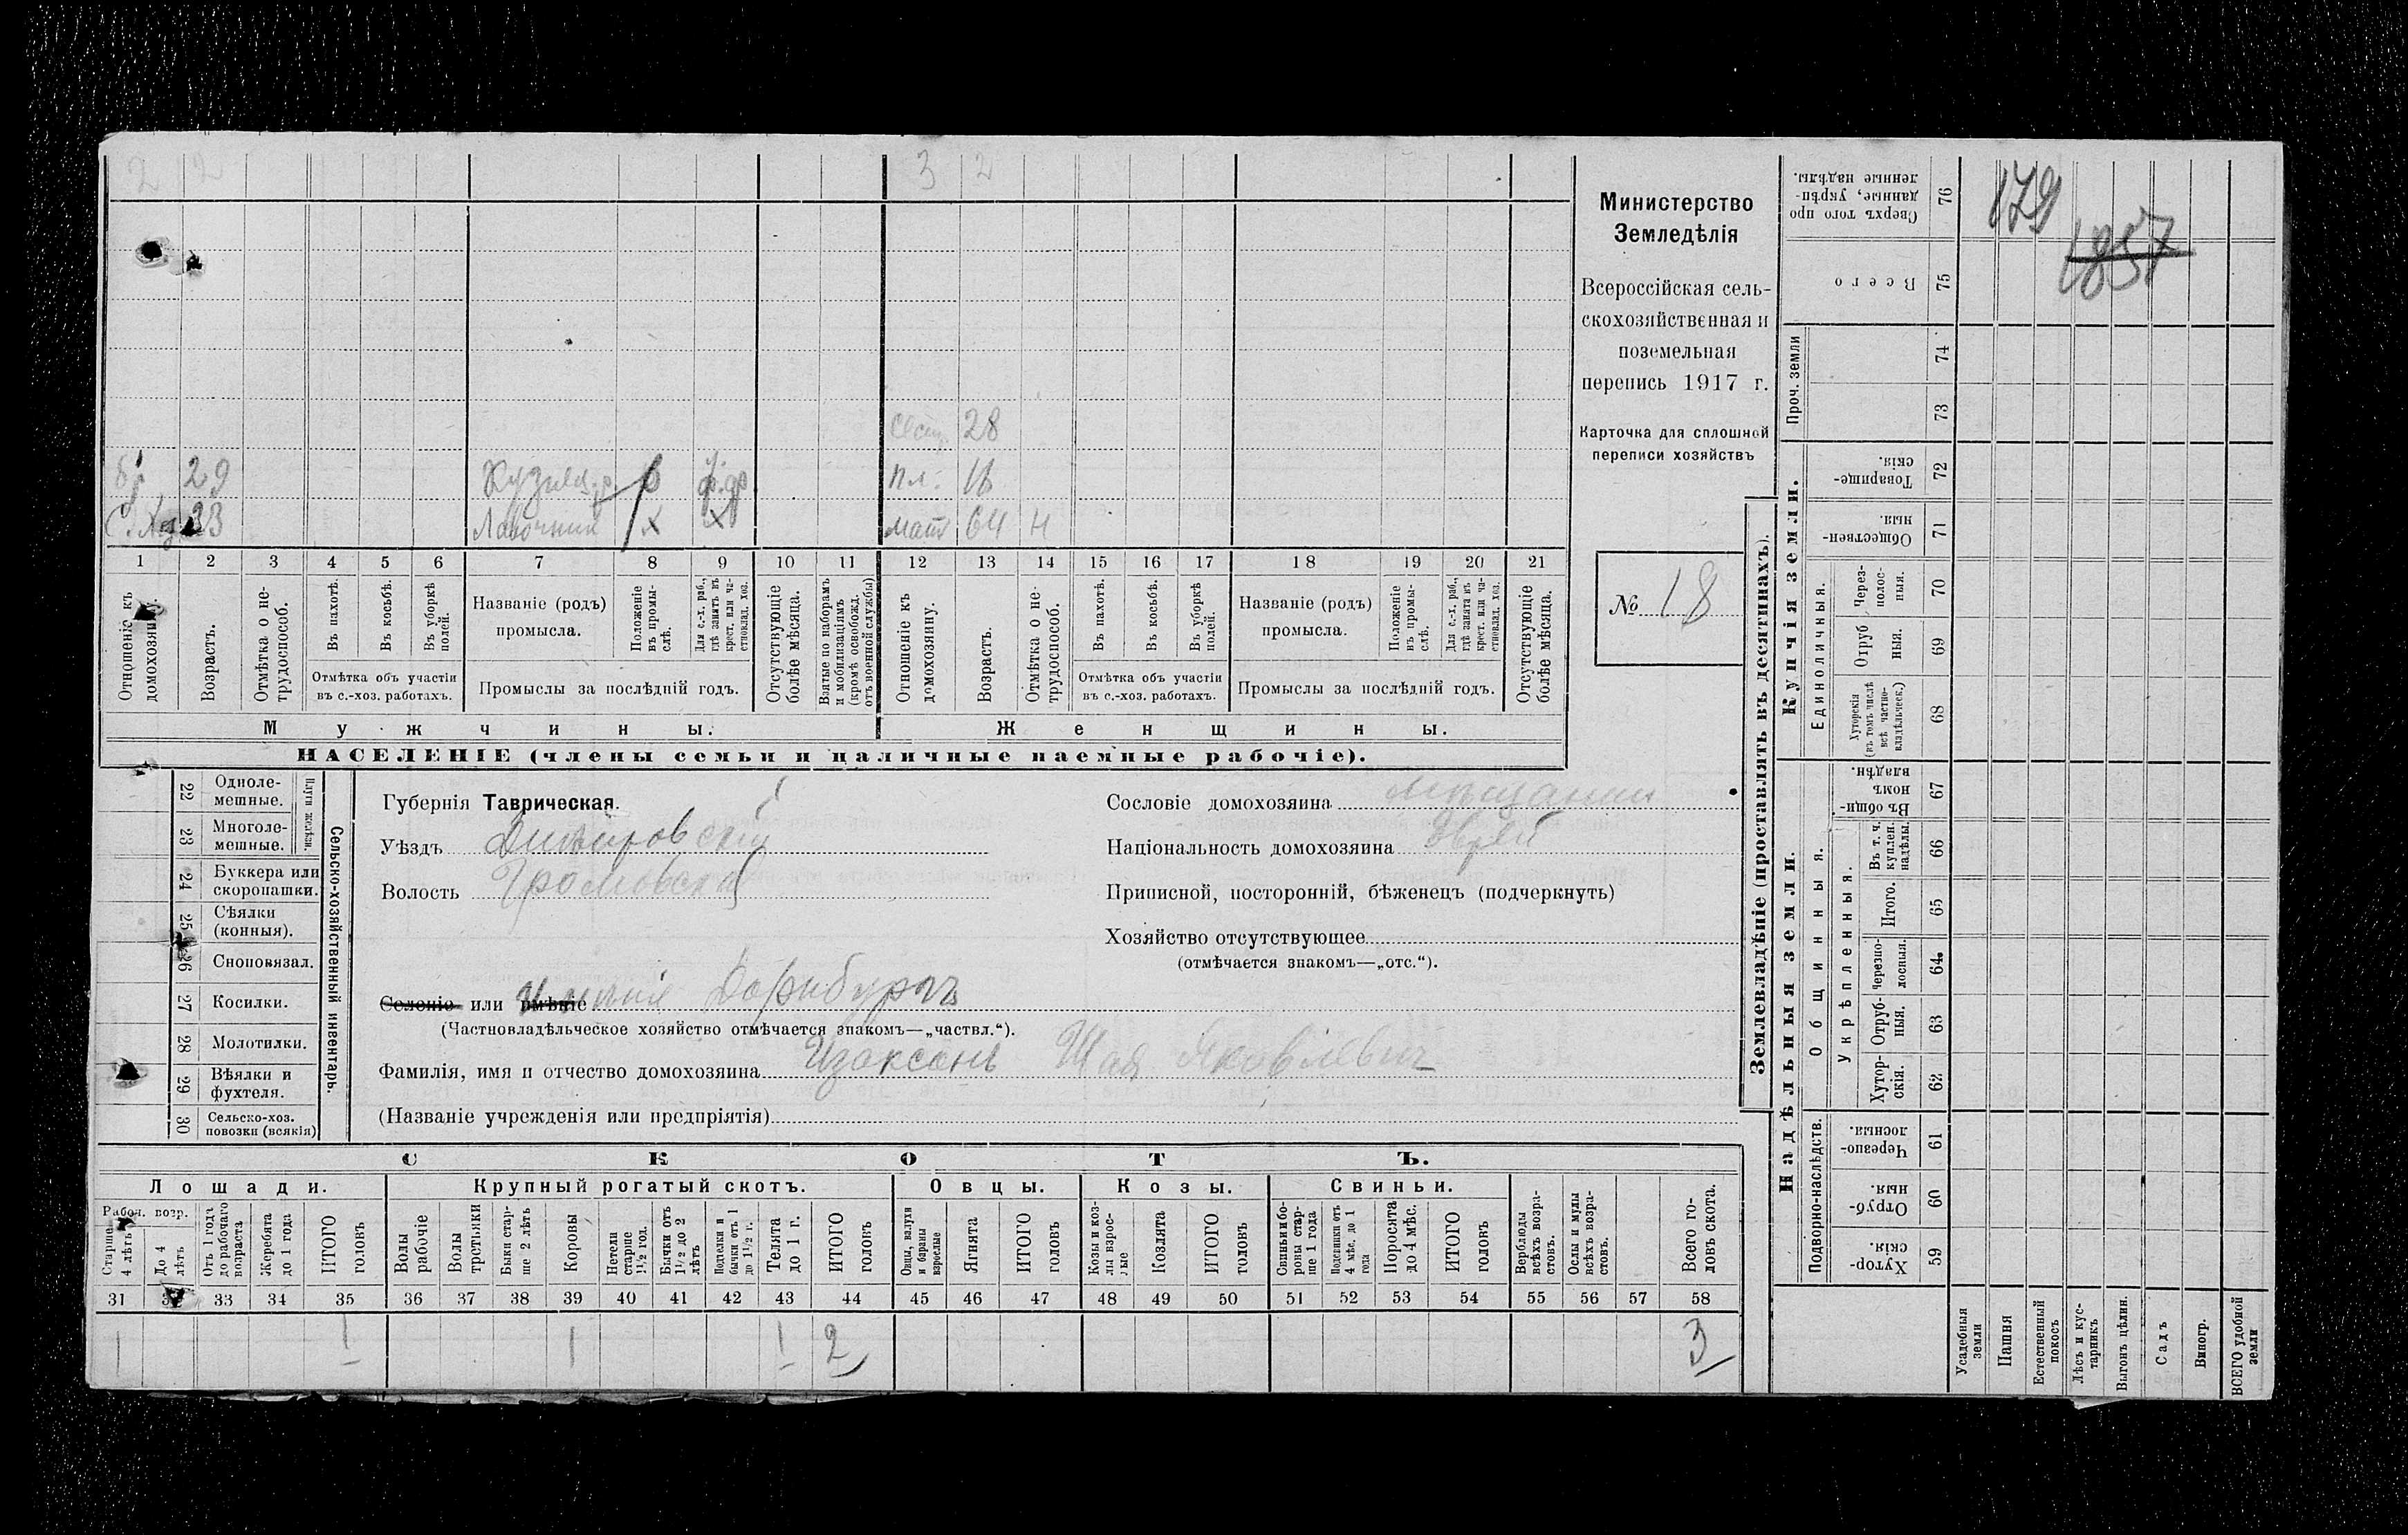 2 2 3 2
сест. 28
бр. 29 Кузнец р. р пл. 11
С. Хоз. 33 Лавочник х х мат 64 н
1 2 3 4 5 6 7 8 9 10 11 12 13 14 15 16 17 18 19 20 21
Отношеніе къ домохозяину.
Возрастъ.
Отмѣтка о нетрудоспособ.
Въ пахотѣ.
Въ косьбѣ.
Въ уборкѣ полей.
Отмѣтка объ участіи
въ с.-хоз. работахъ.
Названіе (родъ)
промысла.
Положеніе въ промыслѣ.
Для с.-х. раб., гдѣ занятъ въ крест. или частновлад. хоз.
Промыслы за послѣдній годъ.
Отсутствующіе болѣе мѣсяца.
Взятые по наборамъ и мобилизаціямъ (кромѣ освобожд. отъ военной службы)
Отношеніе къ домохозяину.
Возрастъ.
Отмѣтка о нетрудоспособ.
Въ пахотѣ.
Въ косьбѣ.
Въ уборкѣ полей.
Отмѣтка объ участіи
въ с.-хоз. работахъ.
Названіе (родъ)
промысла.
Положеніе въ промыслѣ.
Для с.-х. раб., гдѣ занята въ крест. или частновлад. хоз.
Промыслы за послѣдній годъ.
Отсутствующіе болѣе мѣсяца.
Мужчины. Женщины.
НАСЕЛЕНІЕ (члены семьи и наличные наемные рабочіе).
Министерство
Земледѣлія
Всероссійская сель-
скохозяйственная и
поземельная
перепись 1917 г.
Карточка для сплошной
переписи хозяйствъ
№ 18
22 Однолемешные.
23 Многолемешные.
Плуги желѣзн.
24 Буккера или скоропашки.
25 Сѣялки (конныя).
26 Сноповязал.
27 Косилки.
28 Молотилки.
29 Вѣялки и фухтеля.
30 Сельско-хоз. повозки (всякія)
Сельско-хозяйственный инвентарь.
Губернія Таврическая.
Уѣздъ Днѣпровскій
Волость Громовская
Селеніе или имѣніе Имѣніе Дорнбургъ
(Частновладѣльческое хозяйство отмѣчается знакомъ—„частвл.“).
Фамилія, имя и отчество домохозяина Изаксонъ Шая Яковлевич
(Названіе учрежденія или предпріятія)
Сословіе домохозяина мѣщанин
Національность домохозяина Еврей
Приписной, посторонній, бѣженецъ (подчеркнуть)
Хозяйство отсутствующее
(отмѣчается знакомъ—„отс.“).
СКОТЪ.
Лошади. Крупный рогатый скотъ. Овцы. Козы. Свиньи.
Рабоч. возр.
Старше 4 лѣтъ
До 4 лѣтъ
Отъ 1 года до рабочаго возраста
Жеребята до 1 года
ИТОГО головъ
Волы рабочіе
Волы третьяки
Быки старше 2 лѣтъ
Коровы
Нетели старше 1½ год.
Бычки отъ 1½ до 2 лѣтъ
Подтелки и бычки отъ 1 до 1½ г.
Телята до 1 г.
ИТОГО головъ
Овцы, валухи и бараны взрослые
Ягнята
ИТОГО головъ
Козы и козлы взрослые
Козлята
ИТОГО головъ
Свиньи и боровы старше 1 года
Подсвинки отъ 4 мѣс. до 1 года
Поросята до 4 мѣс.
ИТОГО головъ
Верблюды всѣхъ возрастовъ.
Ослы и мулы всѣхъ возрастовъ.
Всего головъ скота.
31 32 33 34 35 36 37 38 39 40 41 42 43 44 45 46 47 48 49 50 51 52 53 54 55 56 57 58
1 1 1 1 2 3
Землевладѣніе (проставлять въ десятинахъ).
Купчія земли.
Надѣльныя земли.
Сверхъ того проданные, укрѣпленные надѣлы. 76
Всего 75
Проч. земли 74 73
Товарищескія. 72
Общественныя. 71
Единоличныя.
Черезполосныя. 70
Отрубныя. 69
Хуторскія (въ томъ числѣ всѣ частновладѣльческ.) 68
Общинныя.
Въ общинномъ владѣн. 67
Укрѣпленныя.
Въ т. ч. куплен. надѣлы. 66
Итого. 65
Черезполосныя. 64
Отрубныя. 63
Хуторскія. 62
Подворно-наслѣдств.
Черезполосныя. 61
Отрубныя. 60
Хуторскія. 59
179
1857
Усадебныя земли
Пашня
Естественный покосъ
Лѣсъ и кустарникъ
Выгонъ цѣлин.
Садъ
Виногр.
ВСЕГО удобной земли